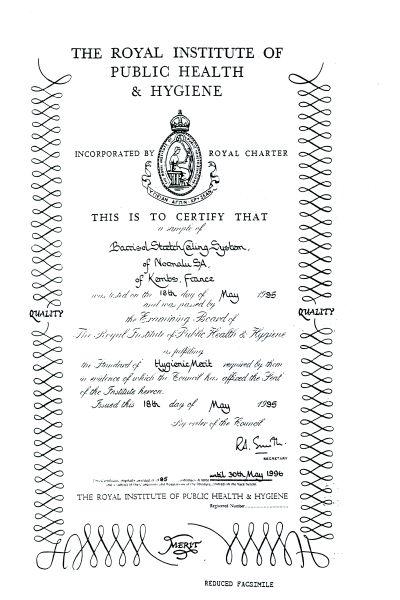 THE ROYAL INSTITUTE OF
PUBLIC HEALTH
& HYGIENE
INCORPORATED BY ROYAL CHARTER
THIS IS TO CERTIFY THAT
a sample of
Barrisol Stretch Ceiling System,
of Normalu S.A,
of Kembs, France
was tested on the 18th day of May 1995
and was passed by
the Examining Board of
The Royal Institute of Public Health & Hygiene
as fulfilling
the Standard of Hygienic Merit required by them
in evidence of which the Council has affixed the Seal
of the Institute hereon.
Issued this 18th day of May 1995
By order of the Council
R.A. Smith
SECRETARY
QUALITY
QUALITY
until 30th May 1996
THE ROYAL INSTITUTE OF PUBLIC HEALTH & HYGIENE
Registered Number
MERIT
REDUCED FACSIMILE